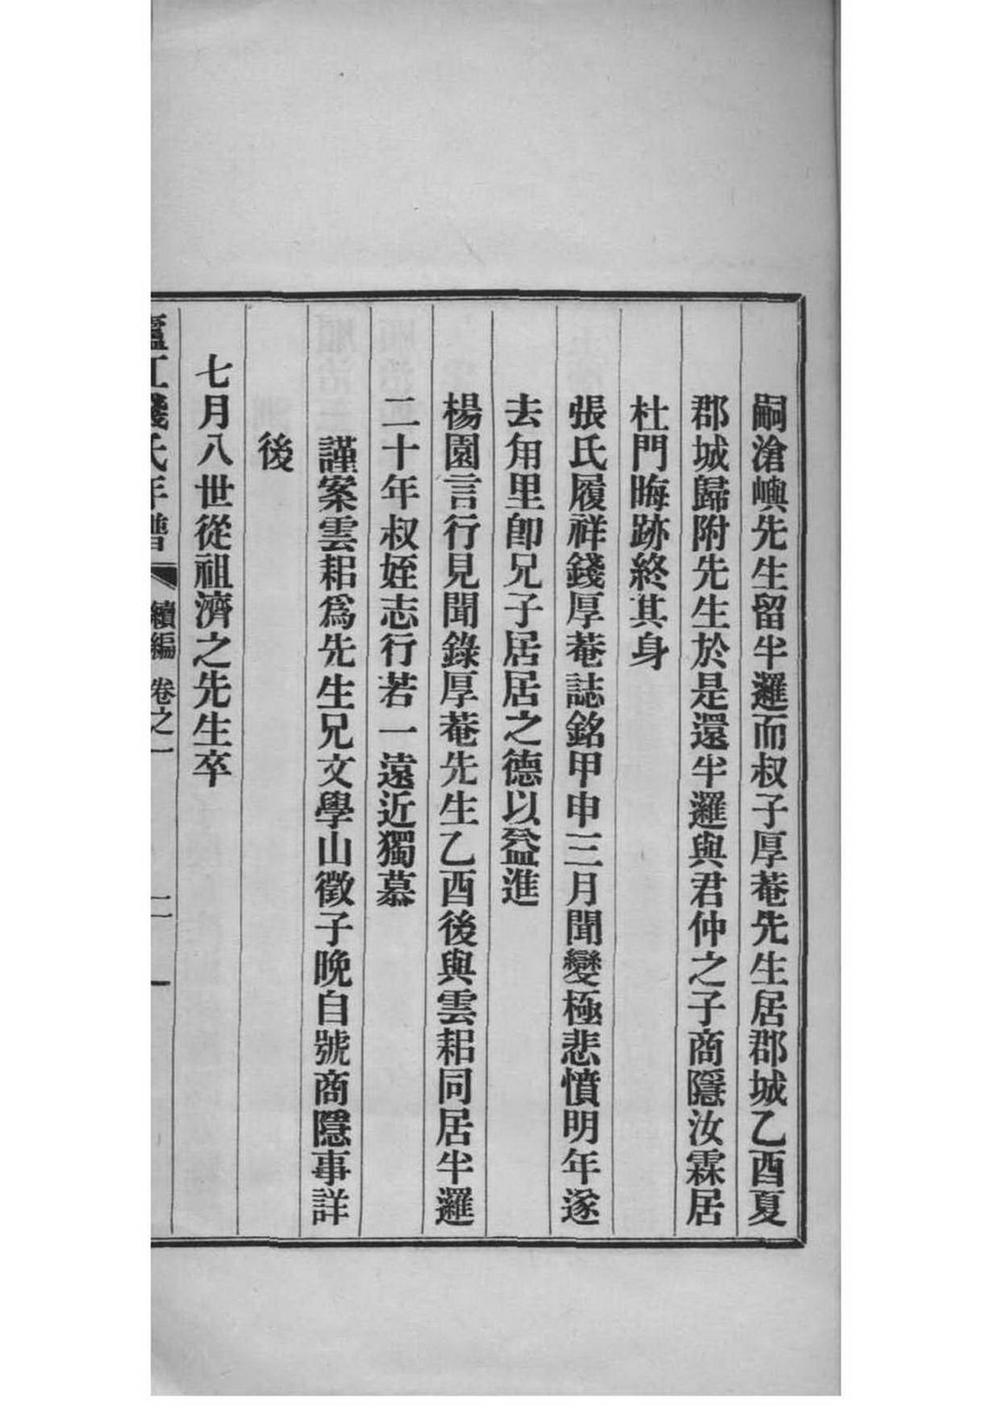 嗣滄嶼先生留半邏而叔子厚菴先生居郡城乙酉夏
郡城歸附先生於是還半邏與君仲之子商隱汝霖居
杜門晦跡終其身
張氏履祥錢厚菴誌銘甲申三月聞變極悲憤明年遂
去甪里卽兄子居居之德以益進
楊園言行見聞錄厚菴先生乙酉後與雲耜同居半邏
二十年叔姪志行若一遠近獨慕
謹案雲耜爲先生兄文學山徵子晚自號商隱事詳
後
七月八世從祖濟之先生卒
廬江錢氏年譜 續編 卷之一 二